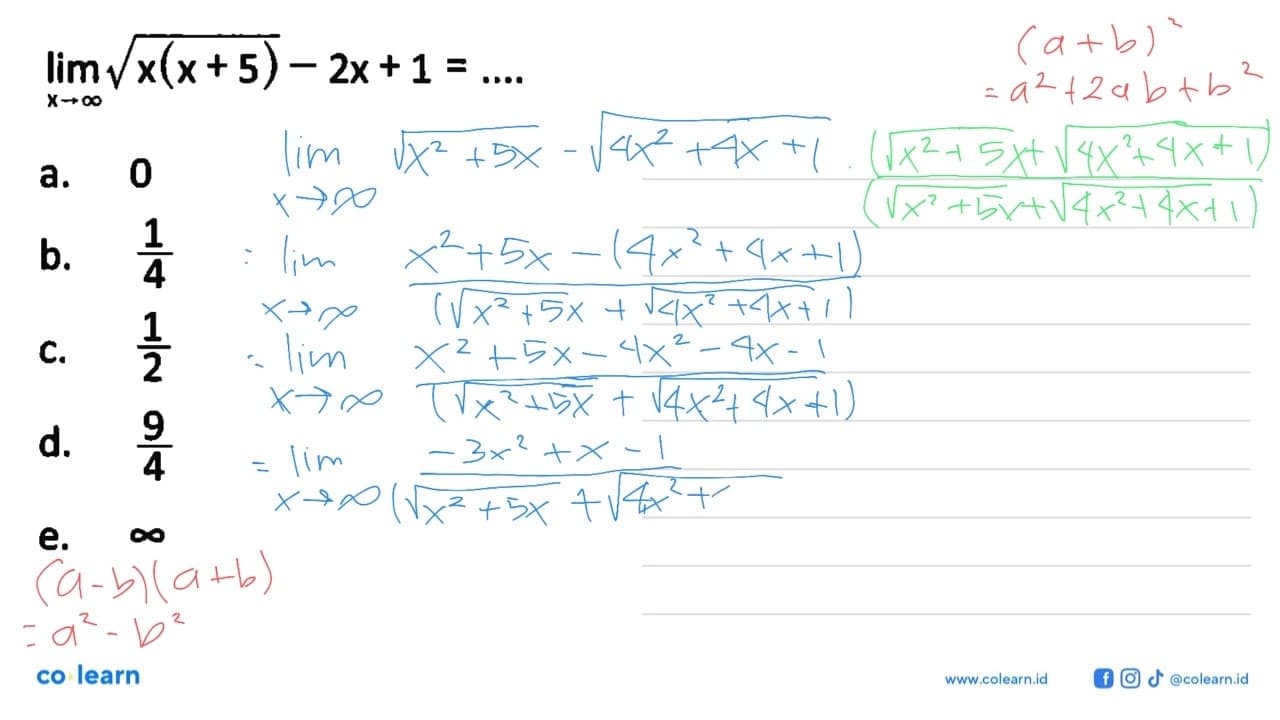 lim x→∞ √x(x + 5) − 2x + 1 = ....
(a+b)²
= a² + 2ab + b²
a. 0
b. 1/4
c. 1/2
d. 9/4
e. ∞
lim x→∞ √x² + 5x − √4x² + 4x + 1 . (√x² + 5x + √4x² + 4x + 1) / (√x² + 5x + √4x² + 4x + 1)
= lim x→∞ x² + 5x − (4x² + 4x + 1) / (√x² + 5x + √4x² + 4x + 1)
= lim x→∞ x² + 5x − 4x² − 4x − 1 / (√x² + 5x + √4x² + 4x + 1)
= lim x→∞ −3x² + x − 1 / (√x² + 5x + √4x² +
(a−b)(a+b)
= a² − b²
co learn
www.colearn.id
@colearn.id